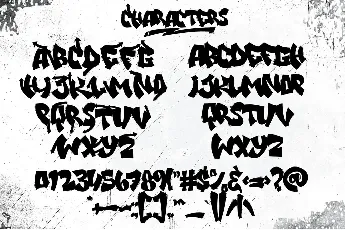 CHARACTERS
ABCDEFG ABCDEFGH
HIJKLMNO IJKLMNOP
PQRSTUV QRSTUV
WXYZ WXYZ
0123456789!"#$%&<=>?@